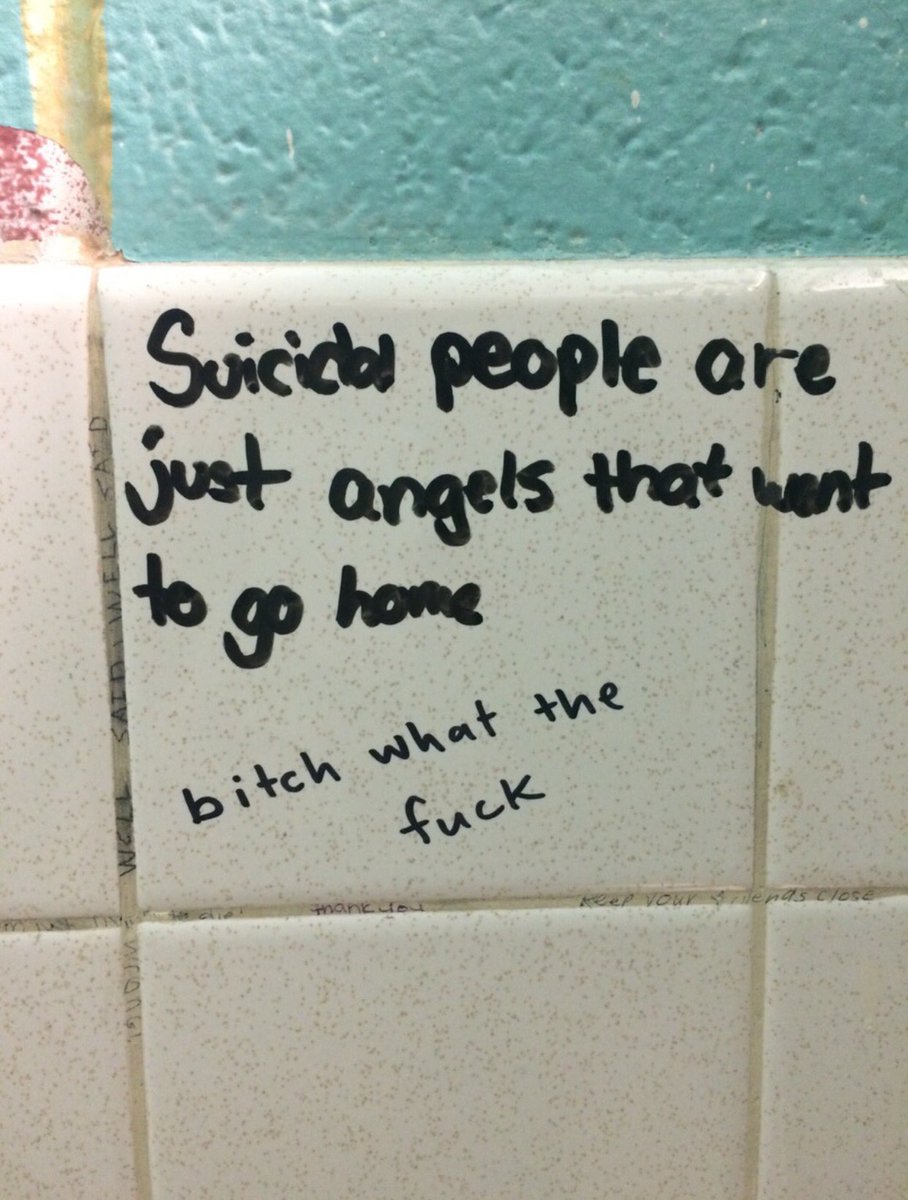 Suicidal people are
just angels that want
to go home
bitch what the
fuck
WELL SAID WELL SAID
thank you
keep your friends close